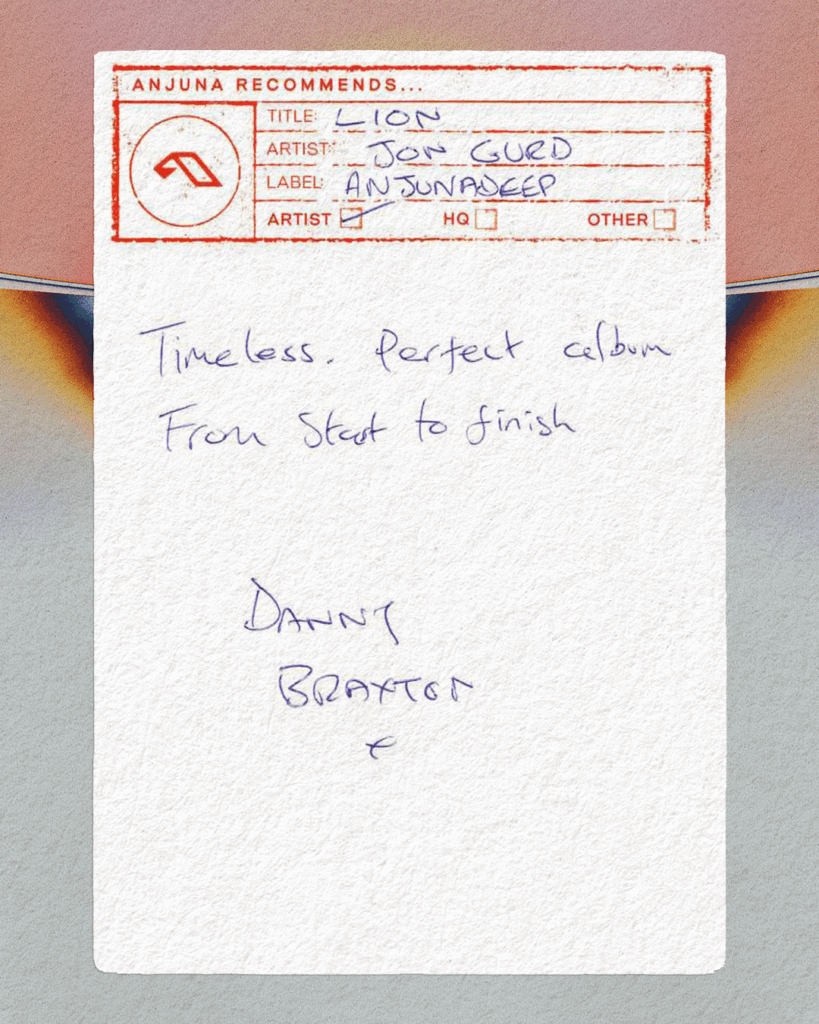 ANJUNA RECOMMENDS...
TITLE: LION
ARTIST: JON GURD
LABEL: ANJUNADEEP
ARTIST HQ OTHER
Timeless. Perfect album
From Start to finish
DANNY
BRAXTON
x